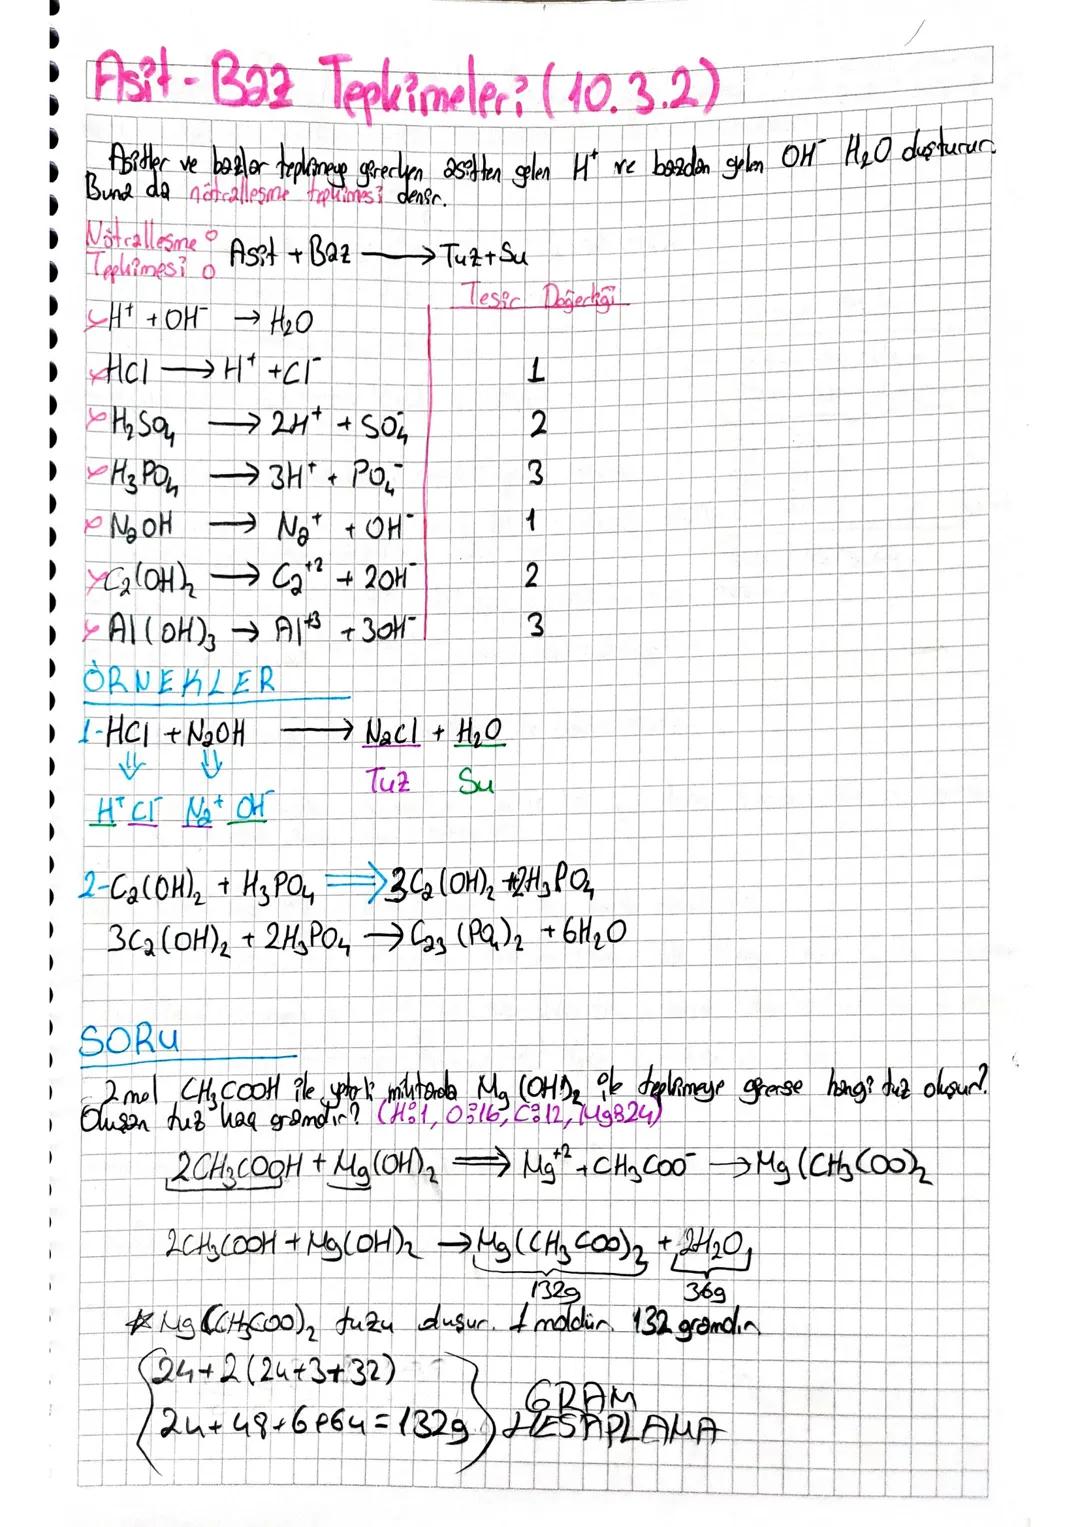 Asit-Baz Tepkimeleri (10.3.2)
Asitler ve bazlar tepkimeye girerken asitten gelen H⁺ ve bazdan gelen OH⁻ H₂O oluşturur.
Buna da nötrallesme tepkimesi denir.
Nötrallesme
Tepkimesi : Asit + Baz → Tuz + Su
Tesir Değerliği
H⁺ + OH⁻ → H₂O
HCl → H⁺ + Cl⁻ 1
H₂SO₄ → 2H⁺ + SO₄⁻ 2
H₃PO₄ → 3H⁺ + PO₄⁻ 3
NaOH → Na⁺ + OH⁻ 1
Ca(OH)₂ → Ca⁺² + 2OH⁻ 2
Al(OH)₃ → Al⁺³ + 3OH⁻ 3
ÖRNEKLER
1-HCl + NaOH → NaCl + H₂O
⇓ ⇓ Tuz Su
H⁺ Cl⁻ Na⁺ OH⁻
2-Ca(OH)₂ + H₃PO₄ ⇒ 3Ca(OH)₂ + 2H₃PO₄
3Ca(OH)₂ + 2H₃PO₄ → Ca₃(PO₄)₂ + 6H₂O
SORU
2 mol CH₃COOH ile yeterli miktarda Mg(OH)₂ ile tepkimeye girerse hangi tuz oluşur?
Oluşan tuz kaç gramdır? (H:1, O:16, C:12, Mg:24)
2CH₃COOH + Mg(OH)₂ ⇒ Mg⁺² + CH₃COO⁻ → Mg(CH₃COO)₂
2CH₃COOH + Mg(OH)₂ → Mg(CH₃COO)₂ + 2H₂O
132g 36g
* Mg(CH₃COO)₂ tuzu oluşur. 1 moldür. 132 gramdır.
24+2(24+3+32)
24+48+6+64=132g
GRAM
HESAPLAMA